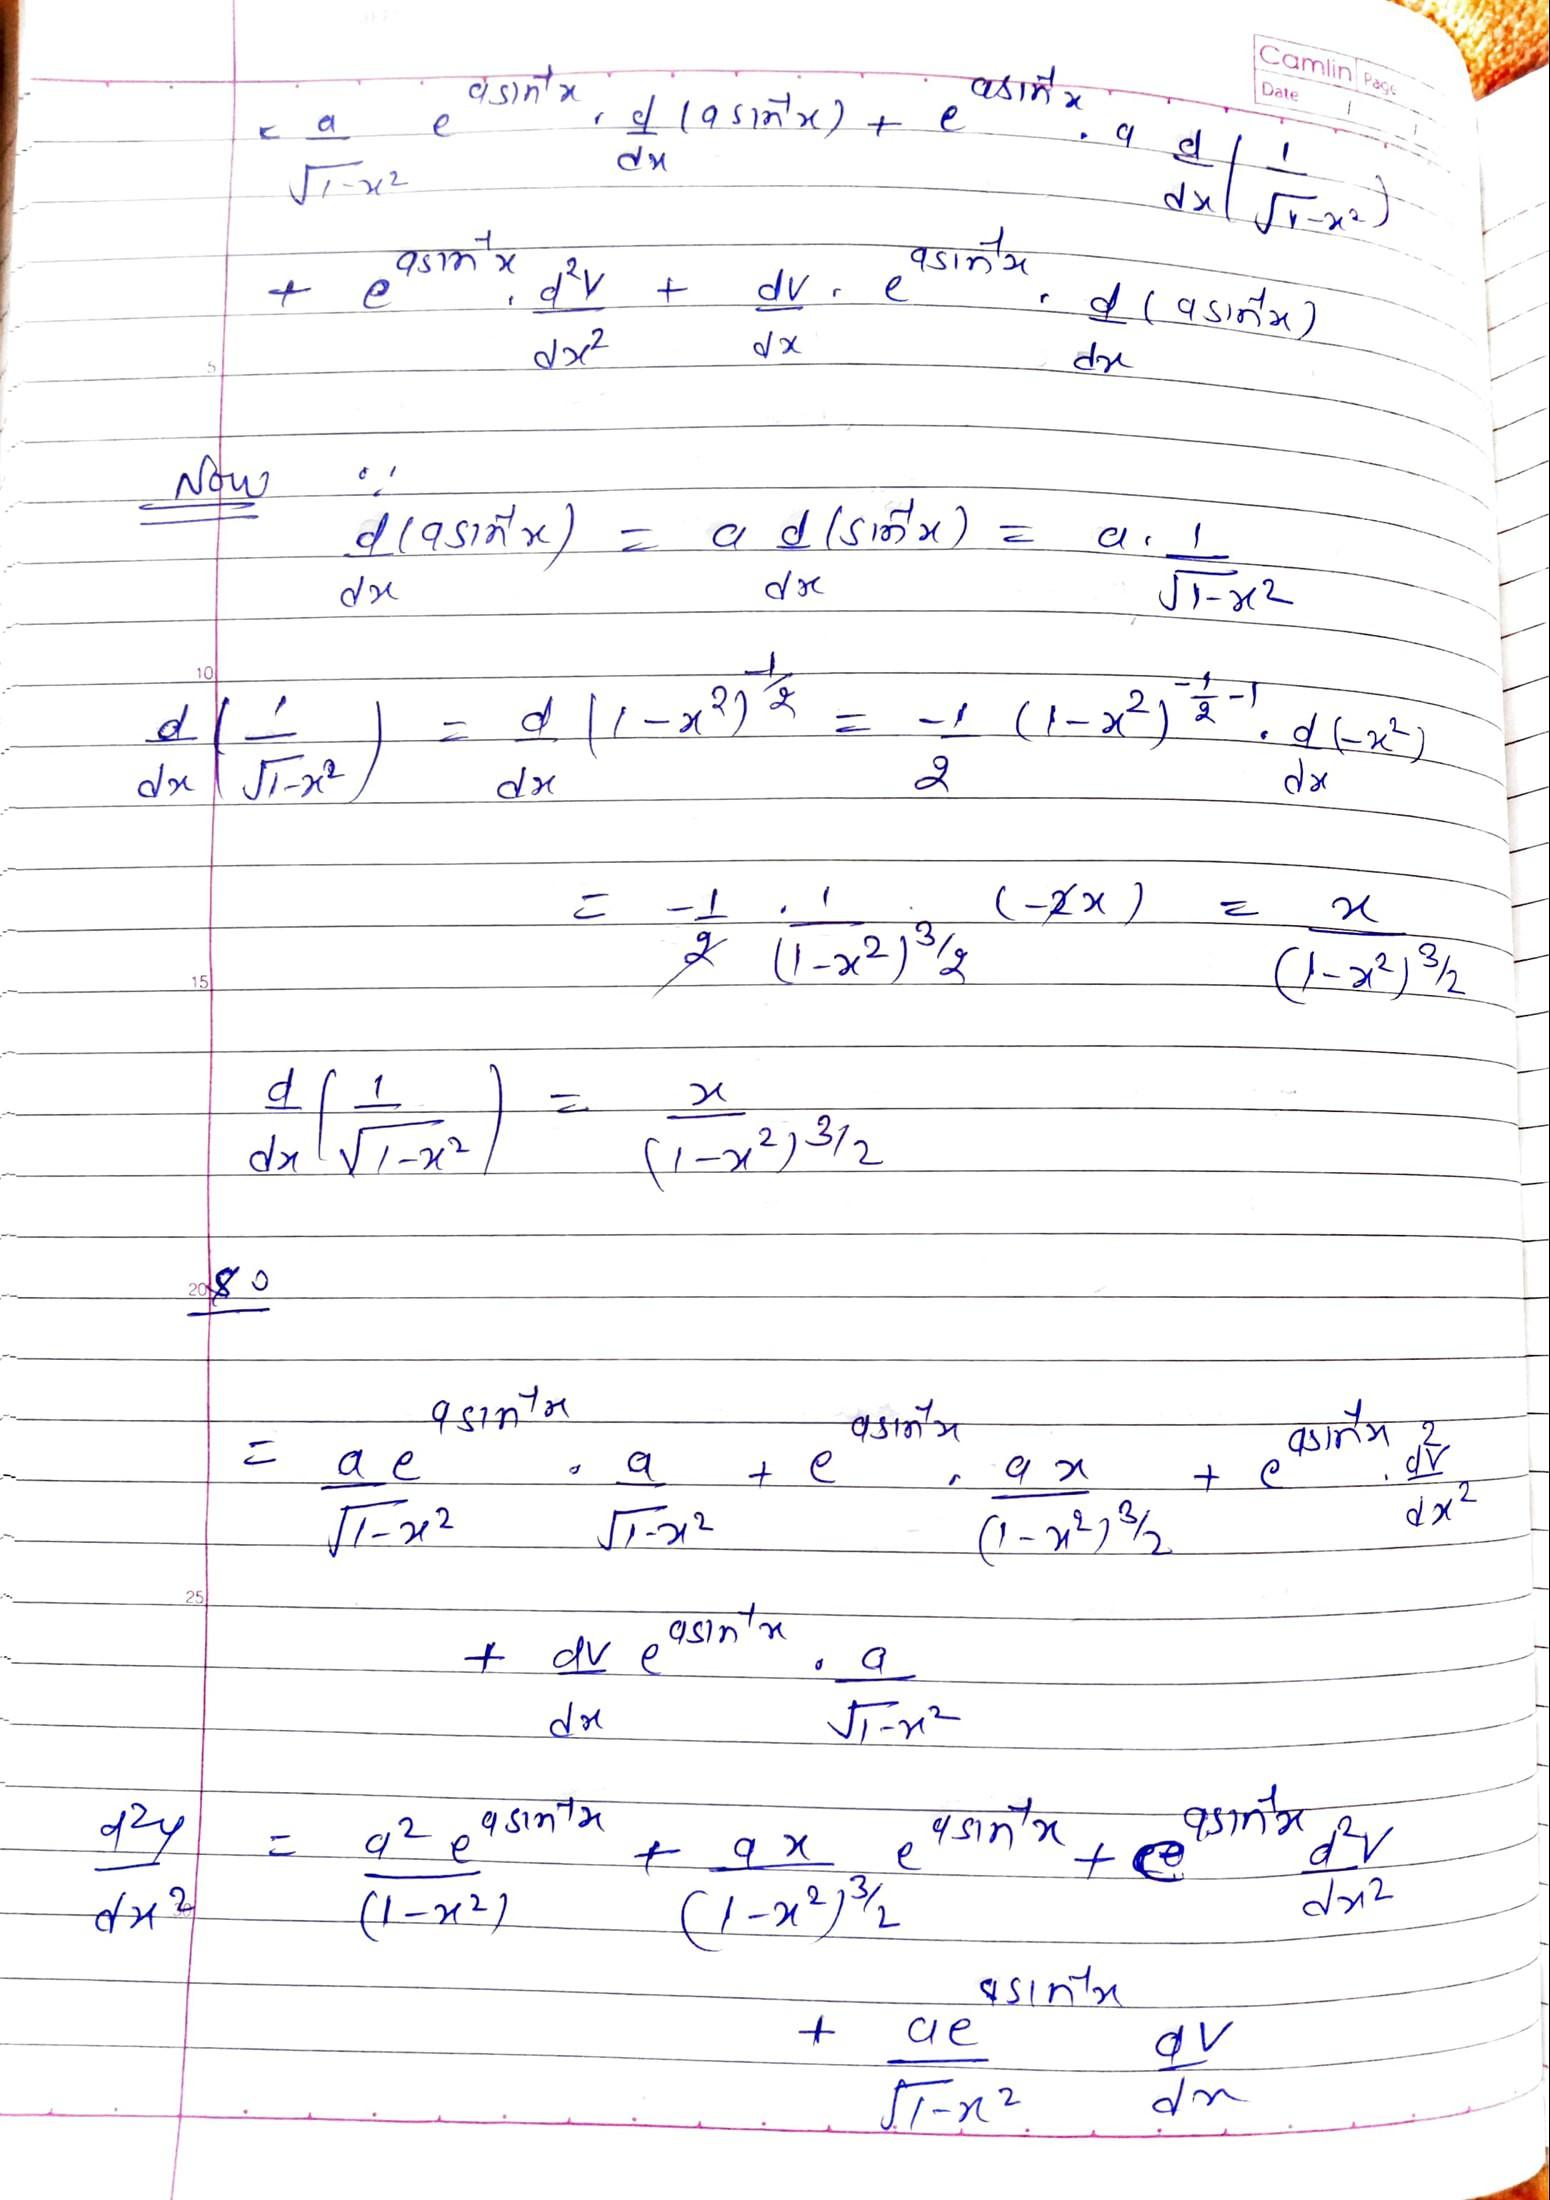 Camlin Page
Date / /
= a/√(1-x²) e^(a sin⁻¹x) . d/dx (a sin⁻¹x) + e^(a sin⁻¹x) . a d/dx (1/√(1-x²))
+ e^(a sin⁻¹x) . d²v/dx² + dv/dx . e^(a sin⁻¹x) . d/dx (a sin⁻¹x)
5
Now ∵
d/dx (a sin⁻¹x) = a d/dx (sin⁻¹x) = a . 1/√(1-x²)
10
d/dx (1/√(1-x²)) = d/dx (1-x²)^(-1/2) = -1/2 (1-x²)^(-1/2 -1) . d/dx (-x²)
= -1/2 . 1/(1-x²)^(3/2) (-2x) = x/(1-x²)^(3/2)
15
d/dx (1/√(1-x²)) = x/(1-x²)^(3/2)
20
So
= a e^(a sin⁻¹x)/√(1-x²) . a/√(1-x²) + e^(a sin⁻¹x) . ax/(1-x²)^(3/2) + e^(a sin⁻¹x) . d²v/dx²
25
+ dv/dx e^(a sin⁻¹x) . a/√(1-x²)
d²y/dx² = a² e^(a sin⁻¹x)/(1-x²) + ax/(1-x²)^(3/2) e^(a sin⁻¹x) + e^(a sin⁻¹x) d²v/dx²
+ a e^(a sin⁻¹x)/√(1-x²) dv/dx